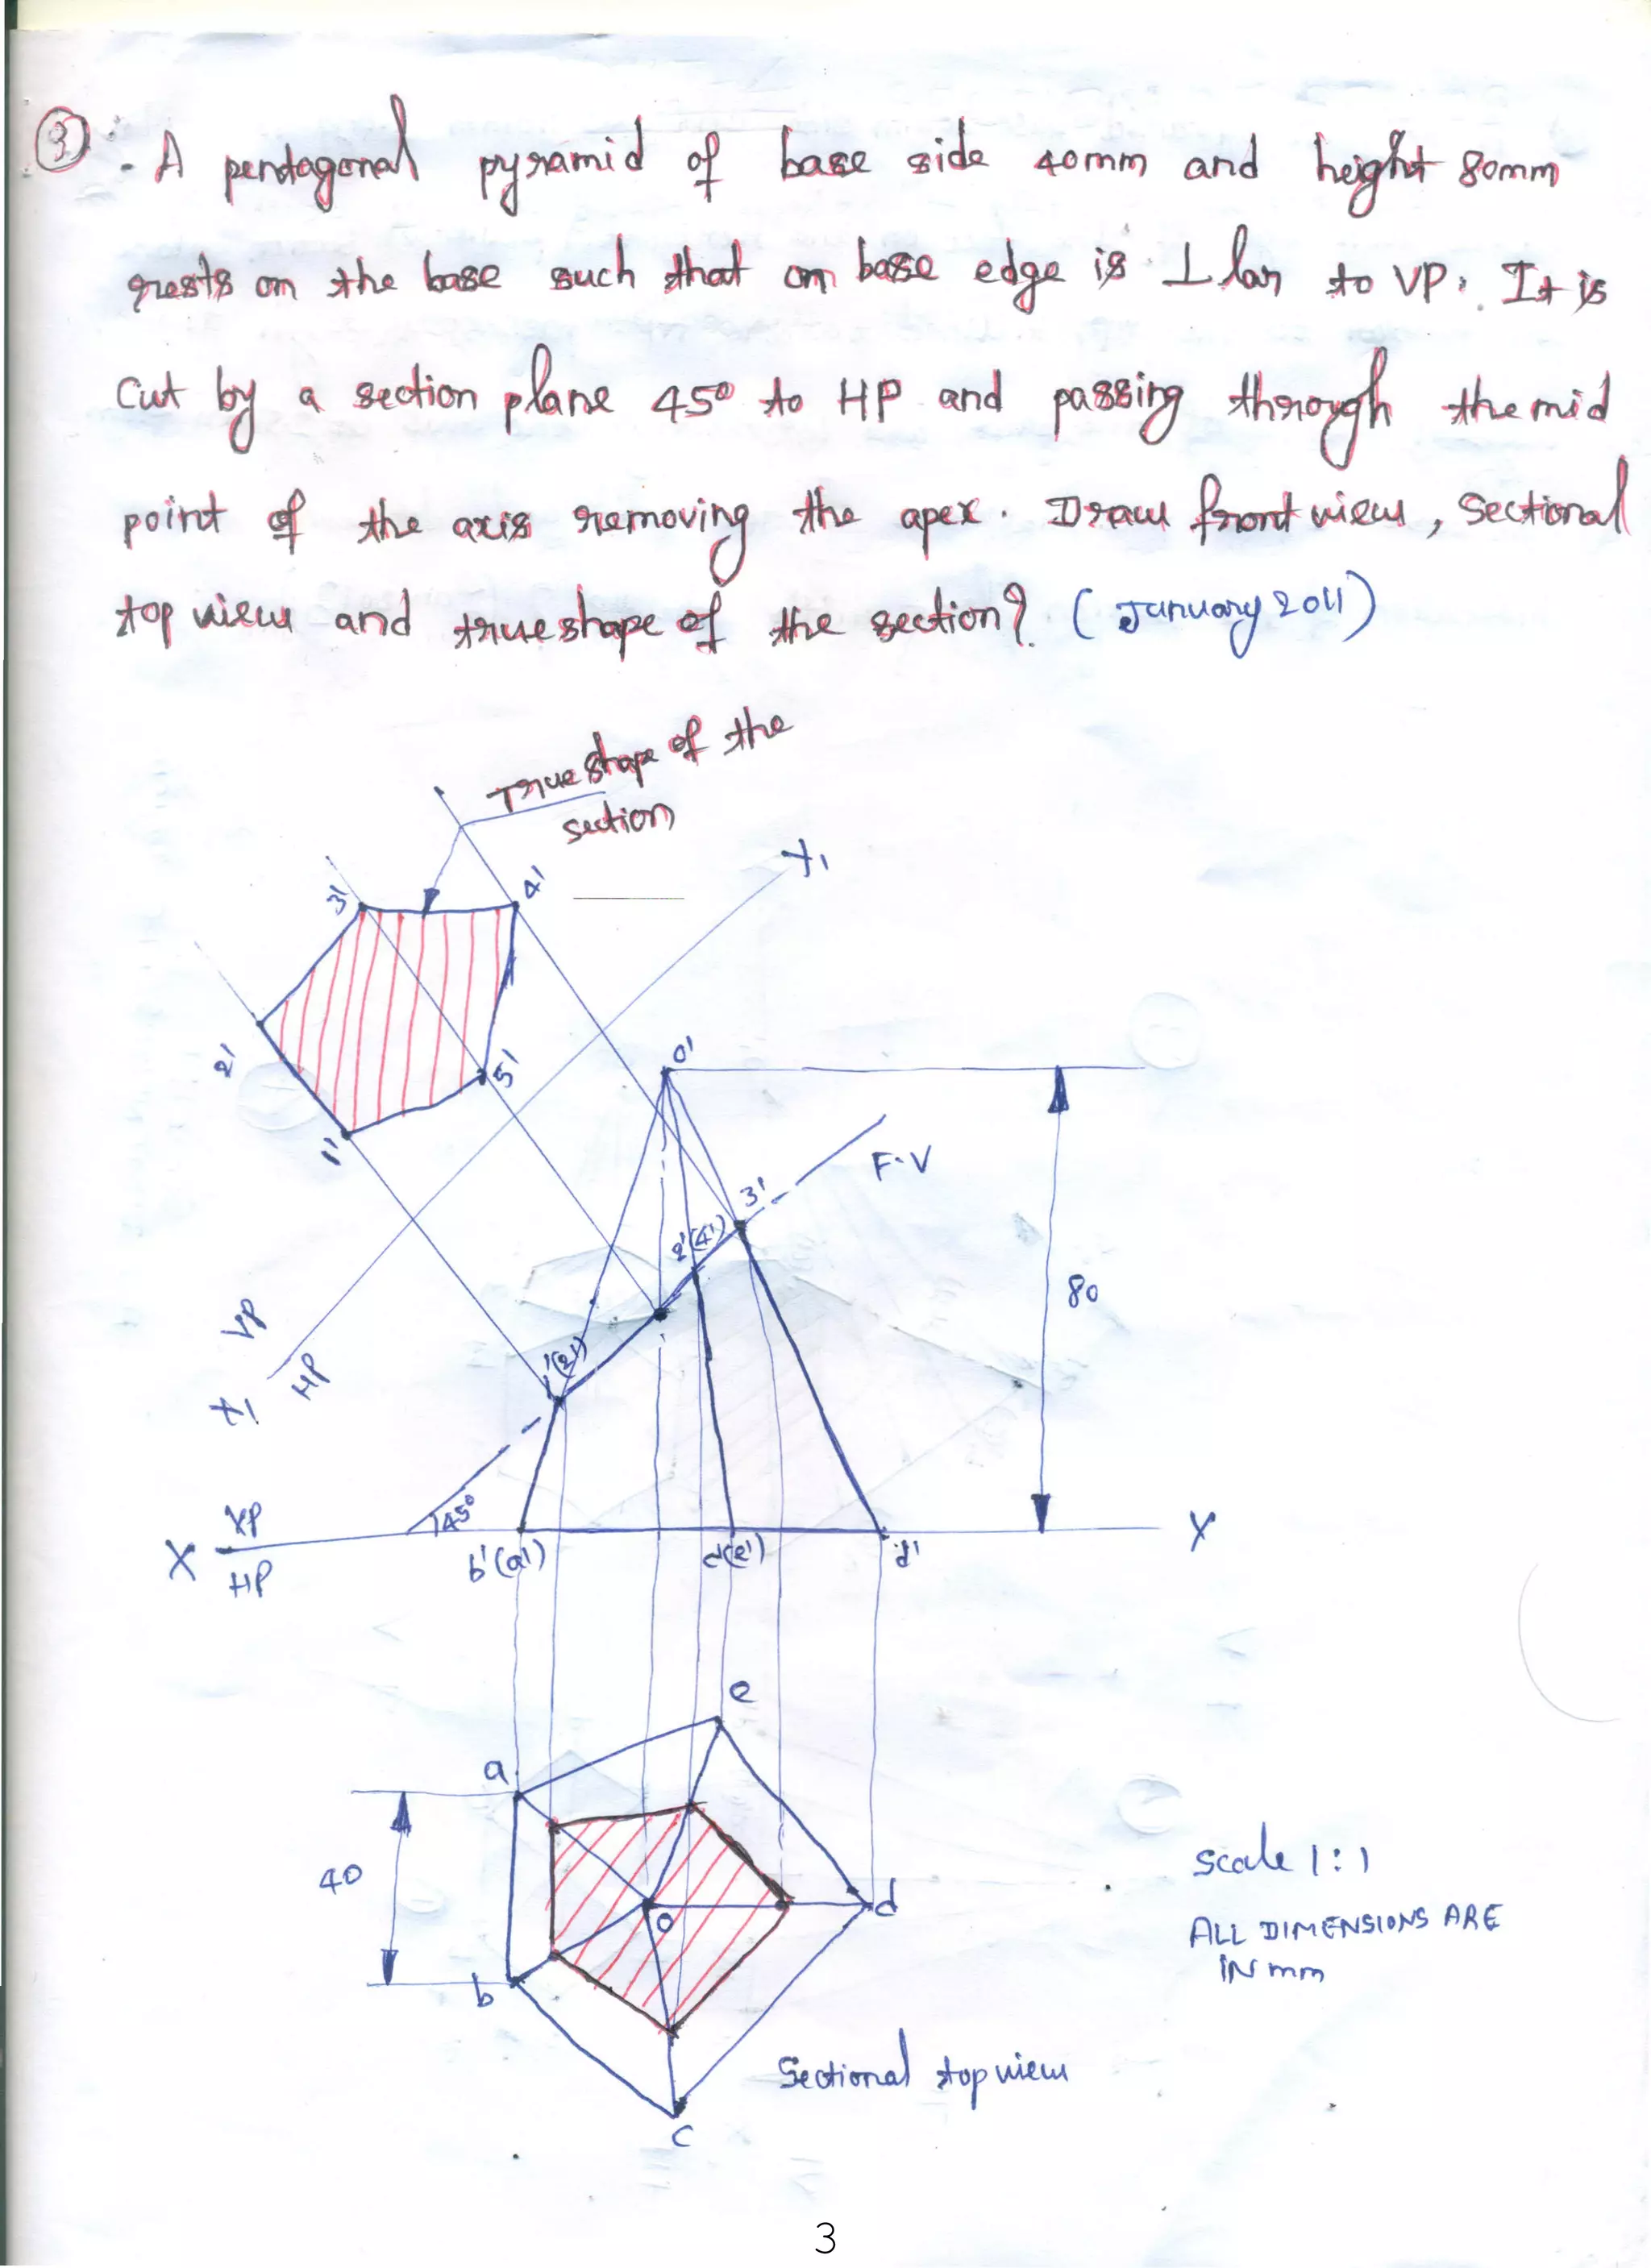 3 - A pentagonal pyramid of base side 40mm and height 80mm
rests on the base such that on base edge is ⊥lar to VP. It is
cut by a section plane 45° to HP and passing through the mid
point of the axis removing the apex. Draw front view, sectional
top view and true shape of the section? (January 2011)
True shape of the
section
X1
3'
4'
2'
1'
5'
o'
F.V
3'
2'(4')
1'(2')
80
VP
HP
X1
45°
X
VP
HP
Y
b'(a')
c'(e')
d'
e
a
40
o
d
b
c
Scale 1:1
ALL DIMENSIONS ARE
IN mm
Sectional top view
3